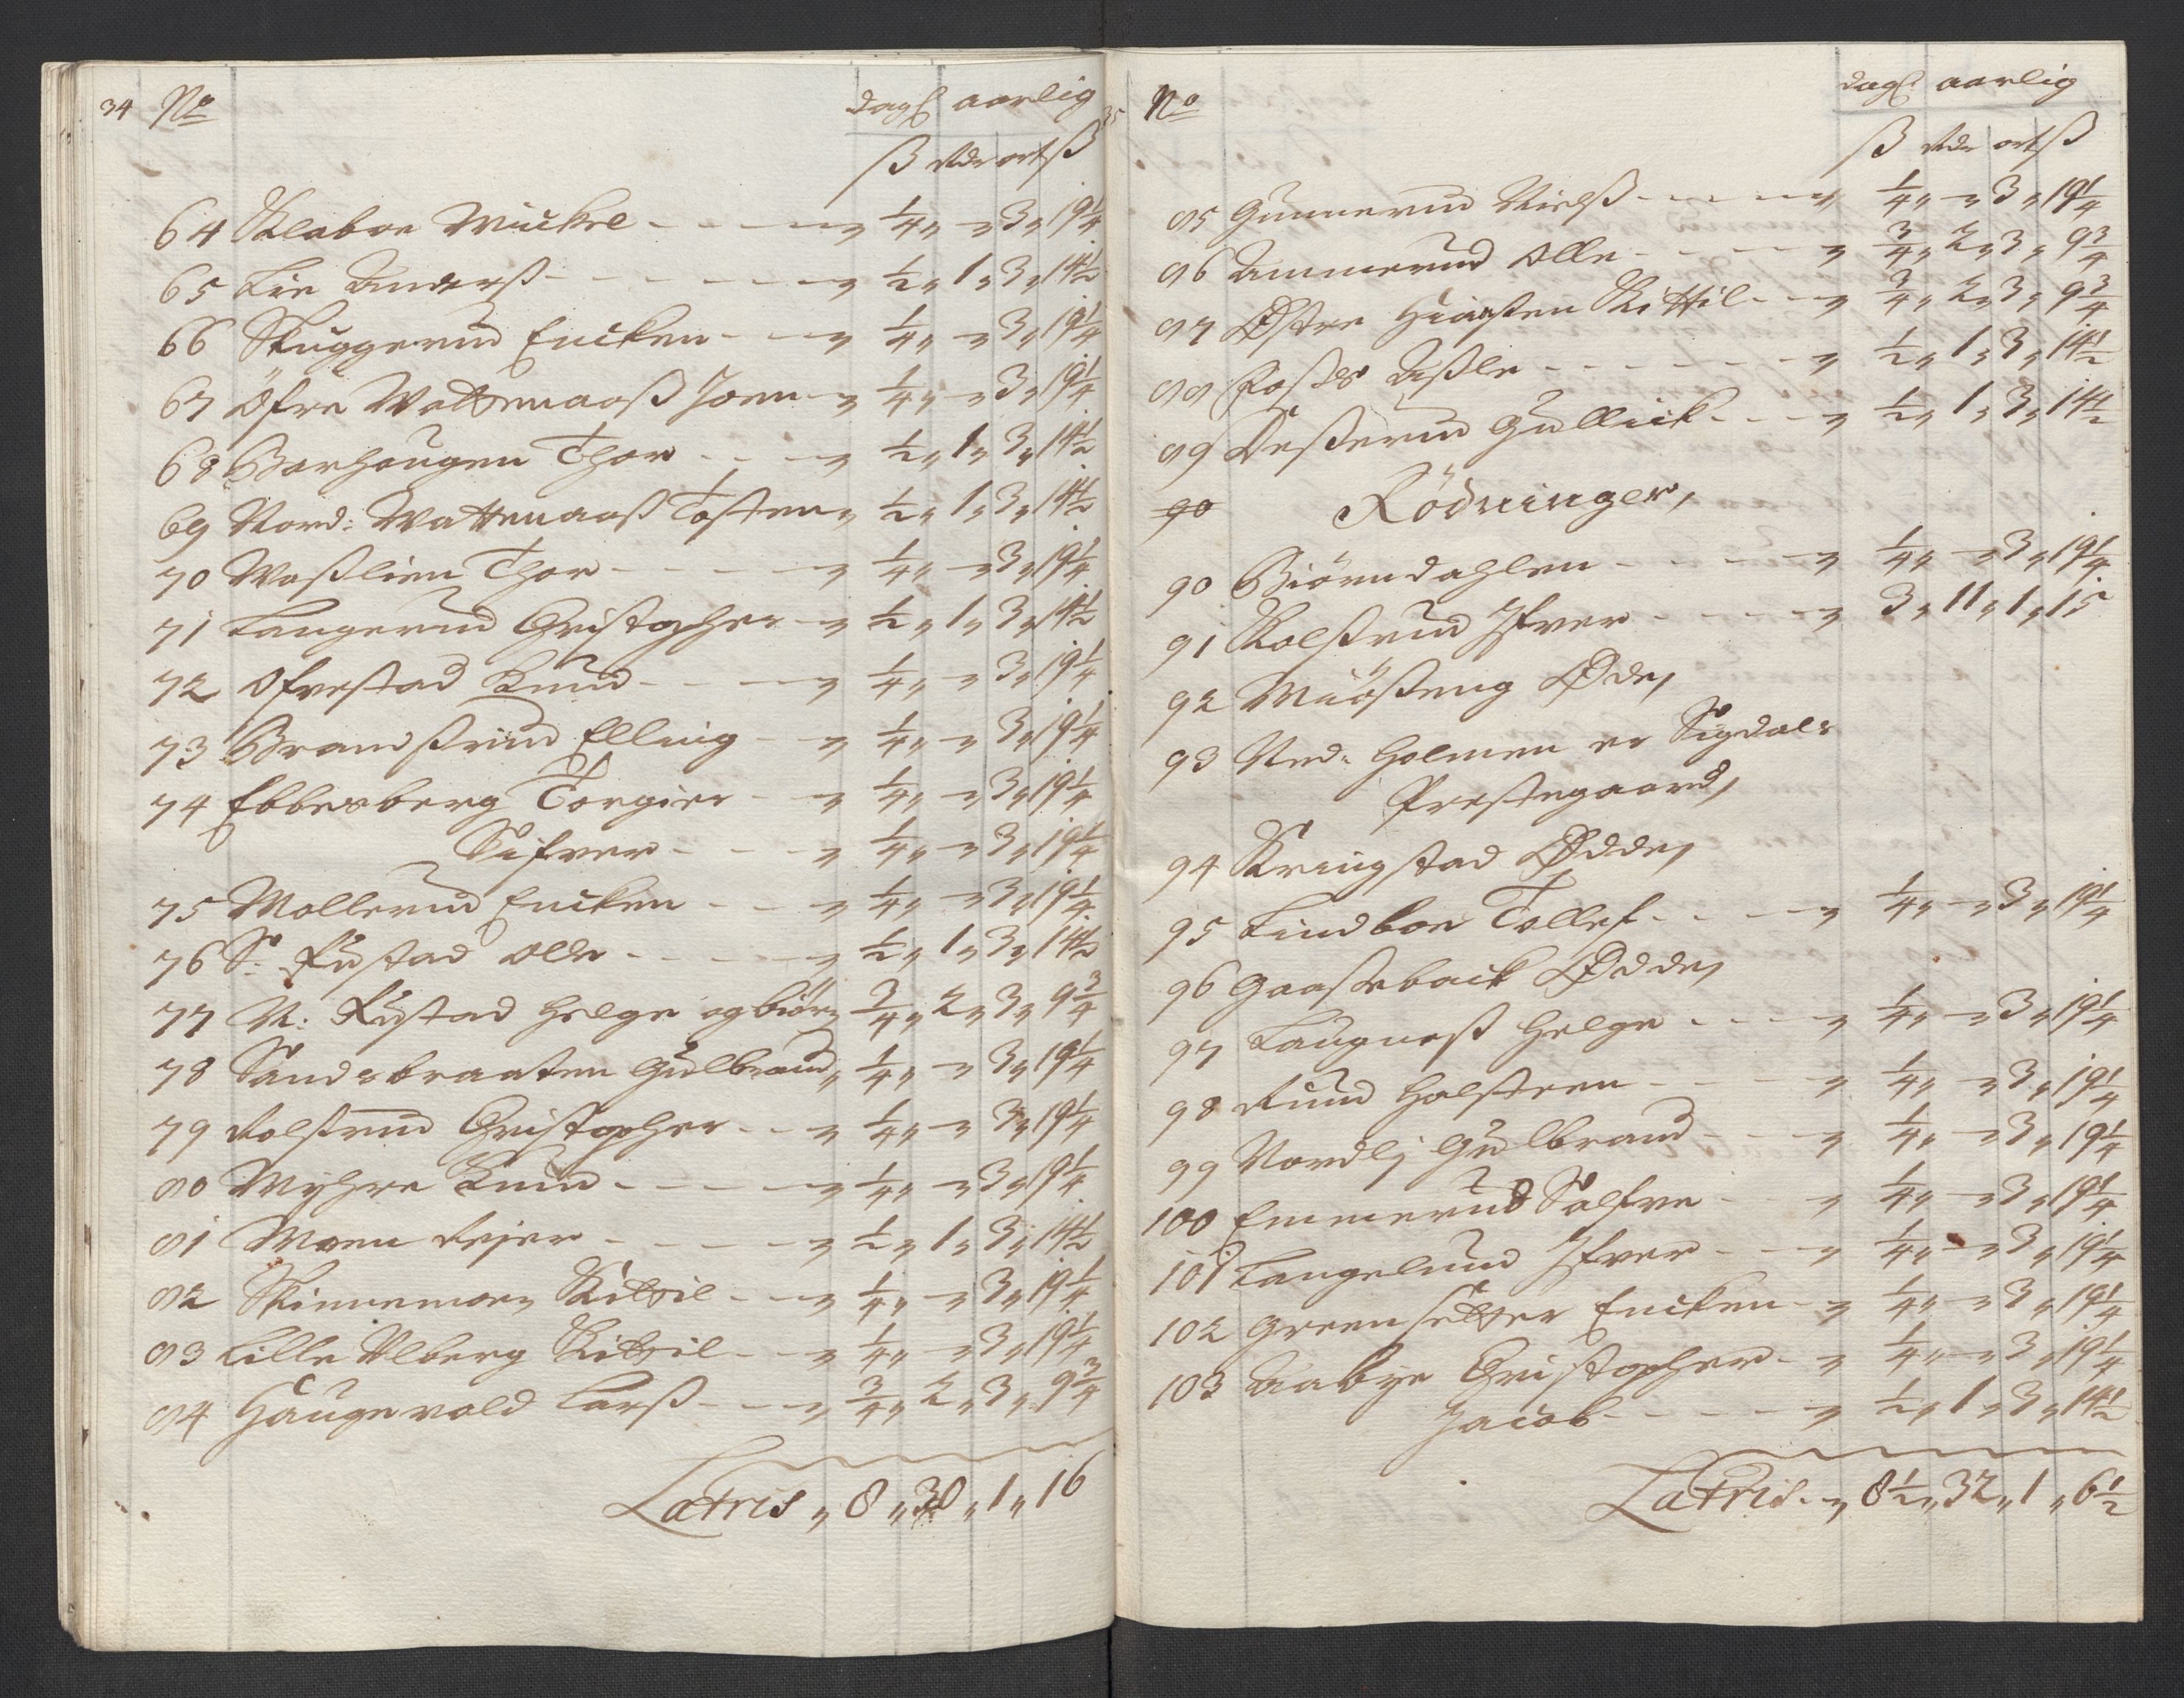 34 No dagl aarlig
ß Rdr ort ß
64 Klaboe Mickel - - - - „ 1/4 „ - „ 3 „ 19 1/4
65 Lie Anders - - - - - „ 1/2 „ 1 „ 3 „ 14 1/2
66 Skuggerud Encken - - - „ 1/4 „ - „ 3 „ 19 1/4
67 Öfre Wattenaaß Joen - „ 1/4 „ - „ 3 „ 19 1/4
68 Borhougen Thor - - - „ 1/2 „ 1 „ 3 „ 14 1/2
69 Nord: Wattenaaß Tosten „ 1/2 „ 1 „ 3 „ 14 1/2
70 Waßlien Thor - - - - „ 1/4 „ - „ 3 „ 19 1/4
71 Langerud Christopher - „ 1/2 „ 1 „ 3 „ 14 1/2
72 Ofvestad Knud - - - - „ 1/4 „ - „ 3 „ 19 1/4
73 Bramstrud Elling - - „ 1/4 „ - „ 3 „ 19 1/4
74 Ebbesberg Torgier - - „ 1/4 „ - „ 3 „ 19 1/4
Sifver - - - „ 1/4 „ - „ 3 „ 19 1/4
75 Mollerud Encken - - - „ 1/4 „ - „ 3 „ 19 1/4
76 S: Rustad Olle - - - - „ 1/2 „ 1 „ 3 „ 14 1/2
77 N: Rustad Helge og biörn „ 3/4 „ 2 „ 3 „ 9 3/4
78 Sandsbraaten Gulbrand „ 1/4 „ - „ 3 „ 19 1/4
79 Rolstrud Christopher - - „ 1/4 „ - „ 3 „ 19 1/4
80 Myhre Knud - - - - „ 1/4 „ - „ 3 „ 19 1/4
81 Moen Reier - - - - - „ 1/2 „ 1 „ 3 „ 14 1/2
82 Skinnemoen Kittil - - „ 1/4 „ - „ 3 „ 19 1/4
83 Lille Ulberg Kittil - - „ 1/4 „ - „ 3 „ 19 1/4
84 Haugevold Lars - - - „ 3/4 „ 2 „ 3 „ 9 3/4
Latris „ 8 „ 30 „ 1 „ 16
35 No dagl aarlig
ß Rdr ort ß
85 Gunnerud Nielß - - - - „ 1/4 „ - „ 3 „ 19 1/4
86 Ammerud Olle - - - - „ 3/4 „ 2 „ 3 „ 9 3/4
87 Östre Hiaasten Kittil - - „ 3/4 „ 2 „ 3 „ 9 3/4
88 Aßle - - - - - „ 1/2 „ 1 „ 3 „ 14 1/2
89 Deßerud Gullick - - - „ 1/2 „ 1 „ 3 „ 14 1/2
90 Rödninger,
90 Biörndahlen - - - - „ 1/4 „ - „ 3 „ 19 1/4
91 Kolsrud Ifver - - - - „ 3 „ 11 „ 1 „ 15
92 Muösteng Öde,
93 Ned: Holmen er Sigdals
Prestegaard,
94 Kringstad Ödde,
95 Lindboe Tollef - - - - „ 1/4 „ - „ 3 „ 19 1/4
96 Gaaseback Ödde,
97 Laugneß Helge - - - - „ 1/4 „ - „ 3 „ 19 1/4
98 Ruud Holsteen - - - - „ 1/4 „ - „ 3 „ 19 1/4
99 Nordlj Gulbrand - - - „ 1/4 „ - „ 3 „ 19 1/4
100 Emmerud Solfve - - „ 1/4 „ - „ 3 „ 19 1/4
101 Langelund Ifver - - - „ 1/4 „ - „ 3 „ 19 1/4
102 Green setter Encken - „ 1/4 „ - „ 3 „ 19 1/4
103 Aabye Christopher - - „ 1/4 „ - „ 3 „ 19 1/4
Jacob - - - - - „ 1/2 „ 1 „ 3 „ 14 1/2
Latris - „ 8 1/2 „ 32 „ 1 „ 6 1/2